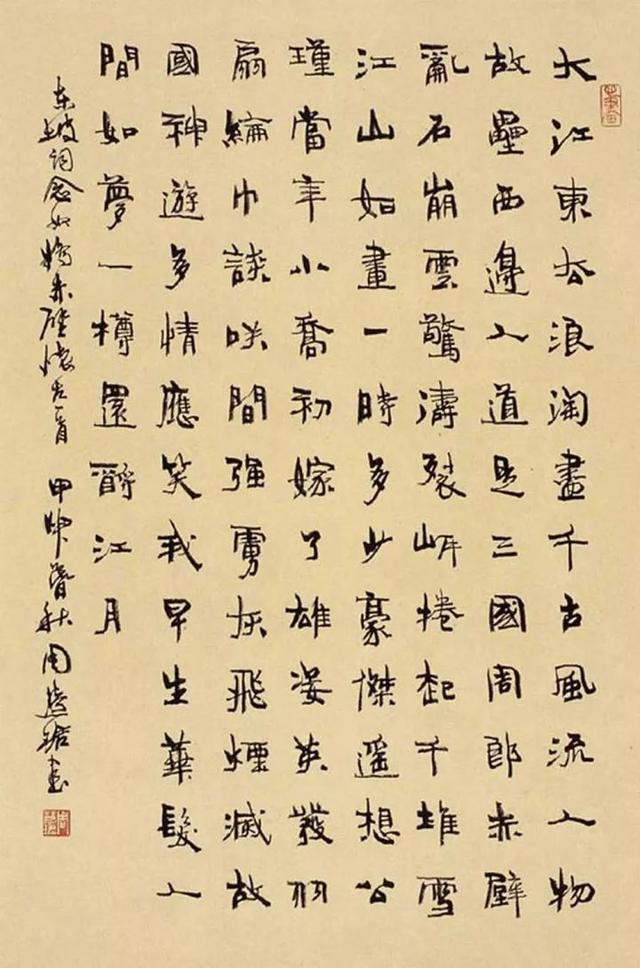 大江東去浪淘盡千古風流人物
故壘西邊人道是三國周郎赤壁
亂石崩雲驚濤裂岸捲起千堆雪
江山如畫一時多少豪傑遥想公
瑾當年小喬初嫁了雄姿英發羽
扇綸巾談笑間强虜灰飛煙滅故
國神遊多情應笑我早生華髮人
間如夢一樽還酹江月
东坡詞念奴嬌赤壁懷古一首 甲申暮秋周慧珺書